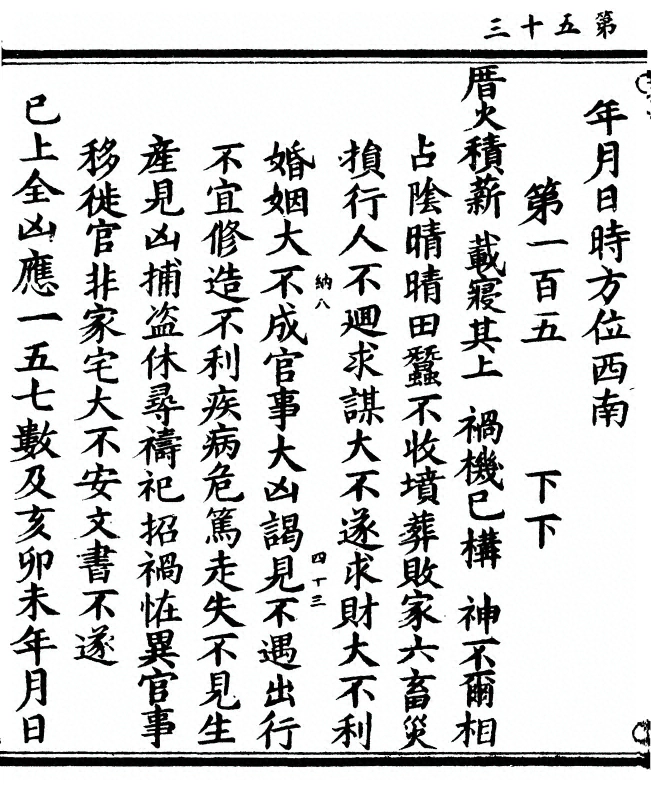 第五十三
年月日時方位西南
第一百五　下下
厝火積薪　載寢其上　禍機已構　神不爾相
占陰晴晴田蠶不收墳葬敗家六畜災
損行人不迴求謀大不遂求財大不利
納八
四十三
婚姻大不成官事大凶謁見不遇出行
不宜修造不利疾病危篤走失不見生
產見凶捕盜休尋禱祀招禍恠異官事
移徙官非家宅大不安文書不遂
已上全凶應一五七數及亥卯未年月日